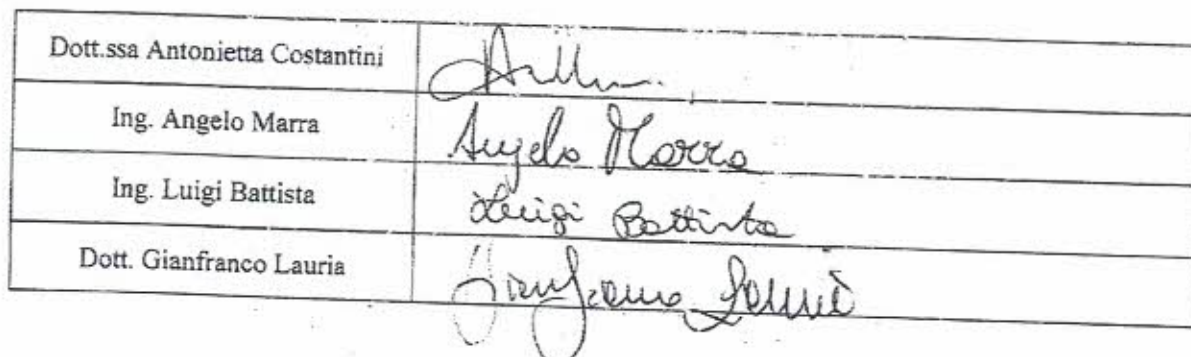 Dott.ssa Antonietta Costantini
Ing. Angelo Marra Angelo Marra
Ing. Luigi Battista Luigi Battista
Dott. Gianfranco Lauria